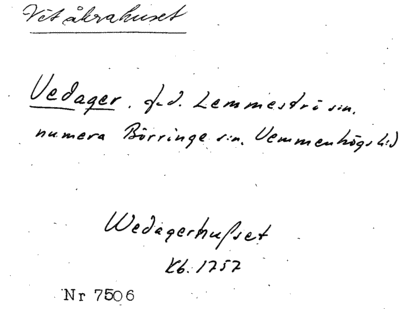 Vitåkrahuset
Vedager, f.d. Lemmeströ sn.
numera Börringe sn. Vemmenhögs hd
Wedagerhuſset
Kb. 1757
Nr 7506